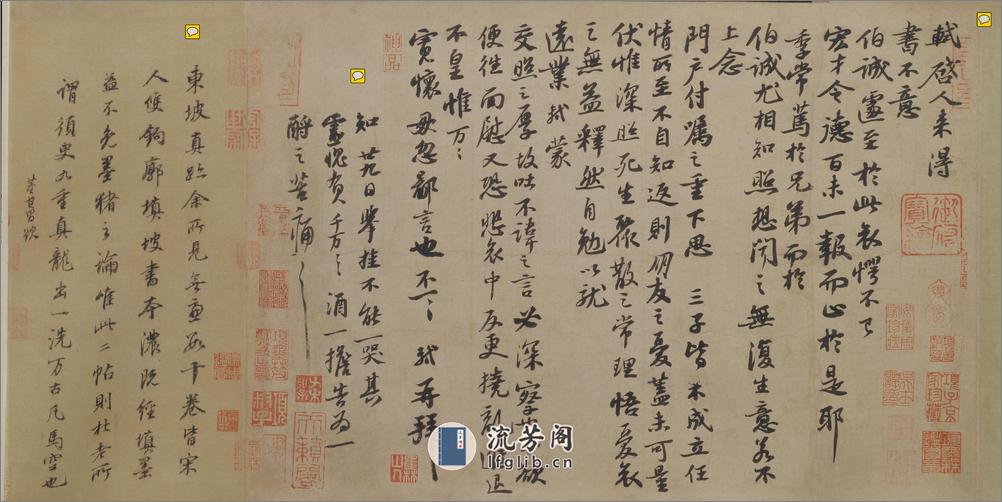 軾啓人來得
書不意
伯誠遽至於此哀愕不已
宏才令德百未一報而止於是耶
季常篤於兄弟而於
伯誠尤相知照想聞之無復生意若不
上念
門戶付囑之重下思三子皆未成立任
情所至不自知返則朋友之憂蓋未可量
伏惟深照死生聚散之常理悟憂哀
之無益釋然自勉以就
遠業軾蒙
交照之厚故吐不諱之言必深察也欲
便往面慰又恐悲哀中反更撓亂進退
不皇惟萬〻
寬懷毋忽鄙言也不一〻軾再拜
知廿九日舉挂不能一哭其
靈愧負千萬〻酒一擔告為一
酹之苦痛〻
東坡真跡余所見無慮數十卷皆宋
人雙鉤廓填坡書本濃既經填墨
益不免墨豬之論惟此二帖則杜老所
謂須臾九重真龍出一洗萬古凡馬空也
董其昌題
流芳阁
lfglib.cn